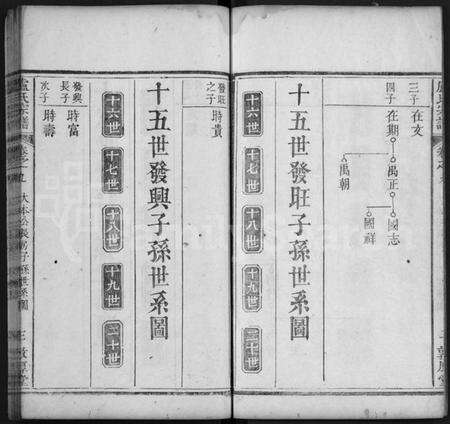 盧氏宗譜
三子 在文
四子 在期 禹正 國志
國祥
禹朝
十五世發旺子孫世系圖
十六世 十七世 十八世 十九世 二十世
發旺之子 時貴
十五世發興子孫世系圖
十六世 十七世 十八世 十九世 二十世
發興長子 時富
次子 時壽
盧氏宗譜
子孫世系圖
三
敦厚堂